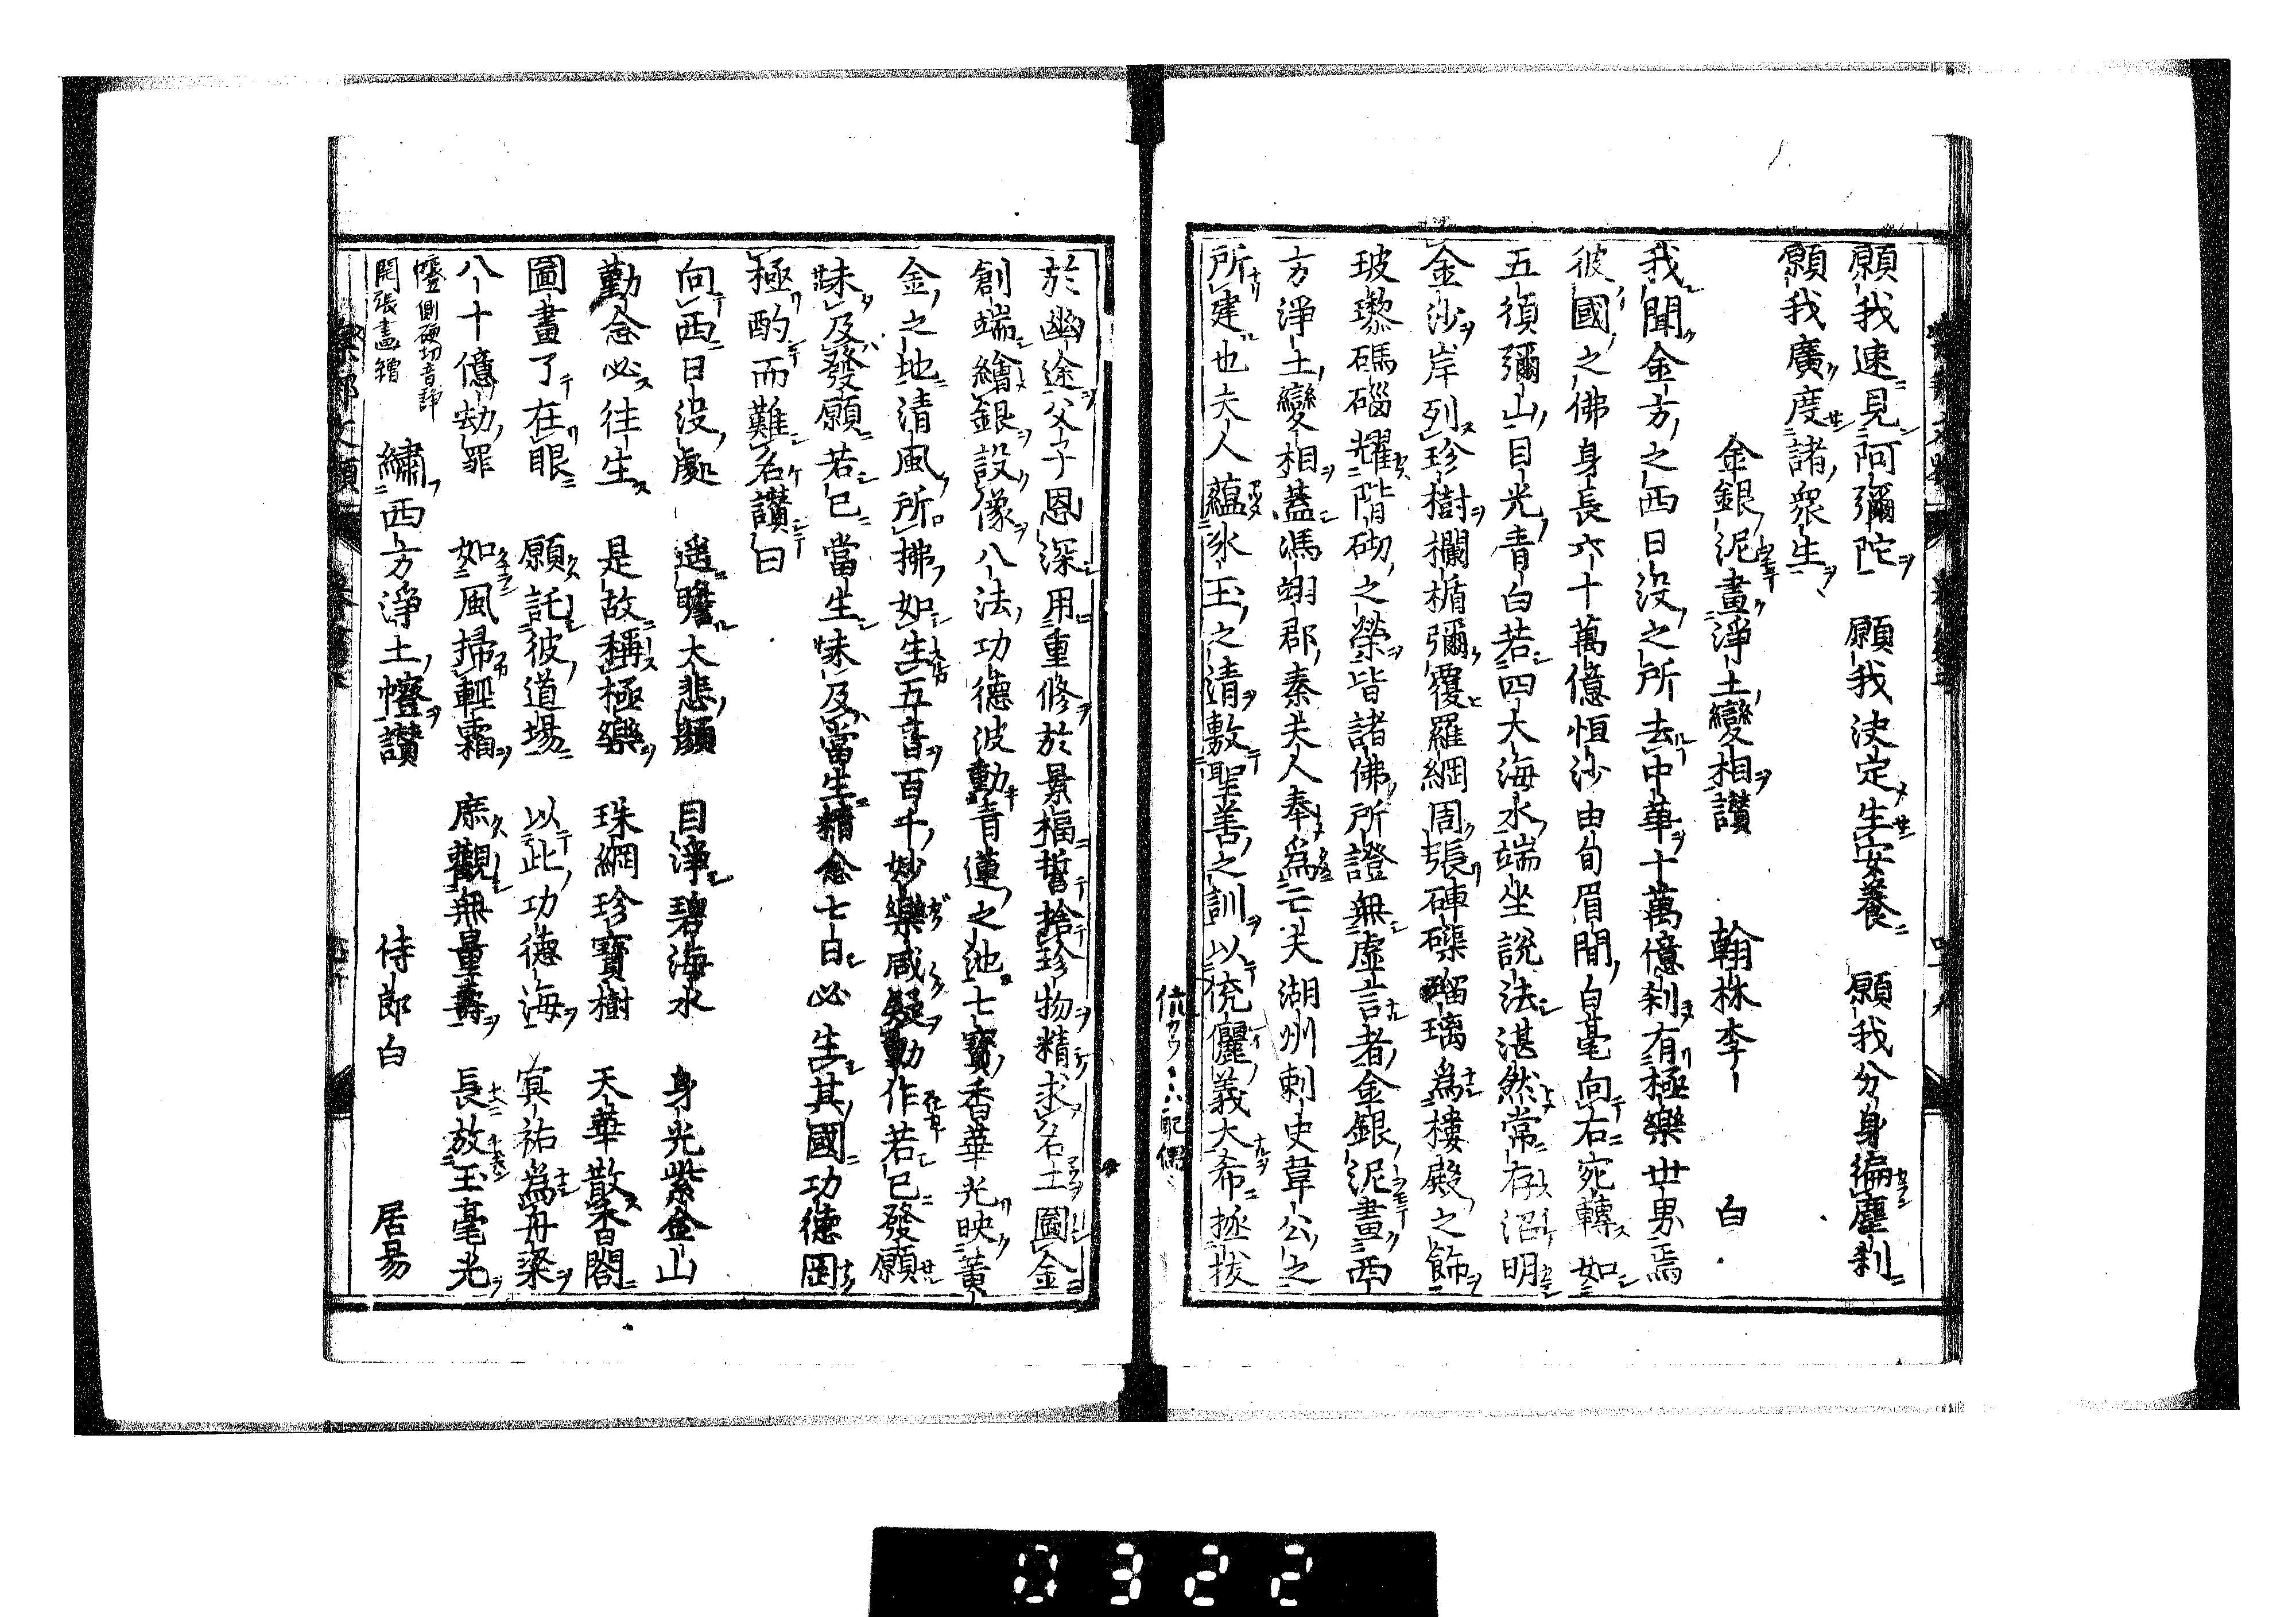 願我速見阿彌陀　願我決定生安養　願我分身徧塵刹
願我廣度諸衆生
金銀泥畫淨土變相讃　翰林李　白
我聞金方之西日没之所去中華十萬億刹有極樂世界焉
彼國之佛身長六十萬億恒沙由旬眉間白毫向右宛轉如
五須彌山目光青白若四大海水端坐説法湛然常存沼明
金沙岸列珍樹欄楯彌覆羅網周張硨磲瑠璃爲樓殿之飾
玻瓈碼碯耀階砌之榮皆諸佛所證無虚言者金銀泥畫西
方淨土變相蓋馮翊郡秦夫人奉爲亡夫湖州刺史韋公之
所建也夫人蘊氷玉之清敷聖善之訓以伉儷義大希拯拔
伉カウ配偶
於幽途父子恩深用重修於景福誓捨珍物精求名工圖金
創端繪銀設像八法功德波動青蓮之池七寶香華光映黄
金之地清風所拂如生五音百千妙樂咸疑動作若已發願
未及發願若已當生未及當生精念七日必生其國功德罔
極酌而難名讃曰
向西日没處　遥瞻大悲顔　目淨碧海水　身光紫金山
勤念必往生　是故稱極樂　珠網珍寶樹　天華散香閣
圖畫了在眼　願託彼道場　以此功德海　冥祐為舟梁
八十億劫罪　如風掃輕霜　庶觀無量壽　長放玉毫光
幰側硬切音諍
開張畫繒
繡西方淨土幰讃　侍郎白　居易
樂邦文類